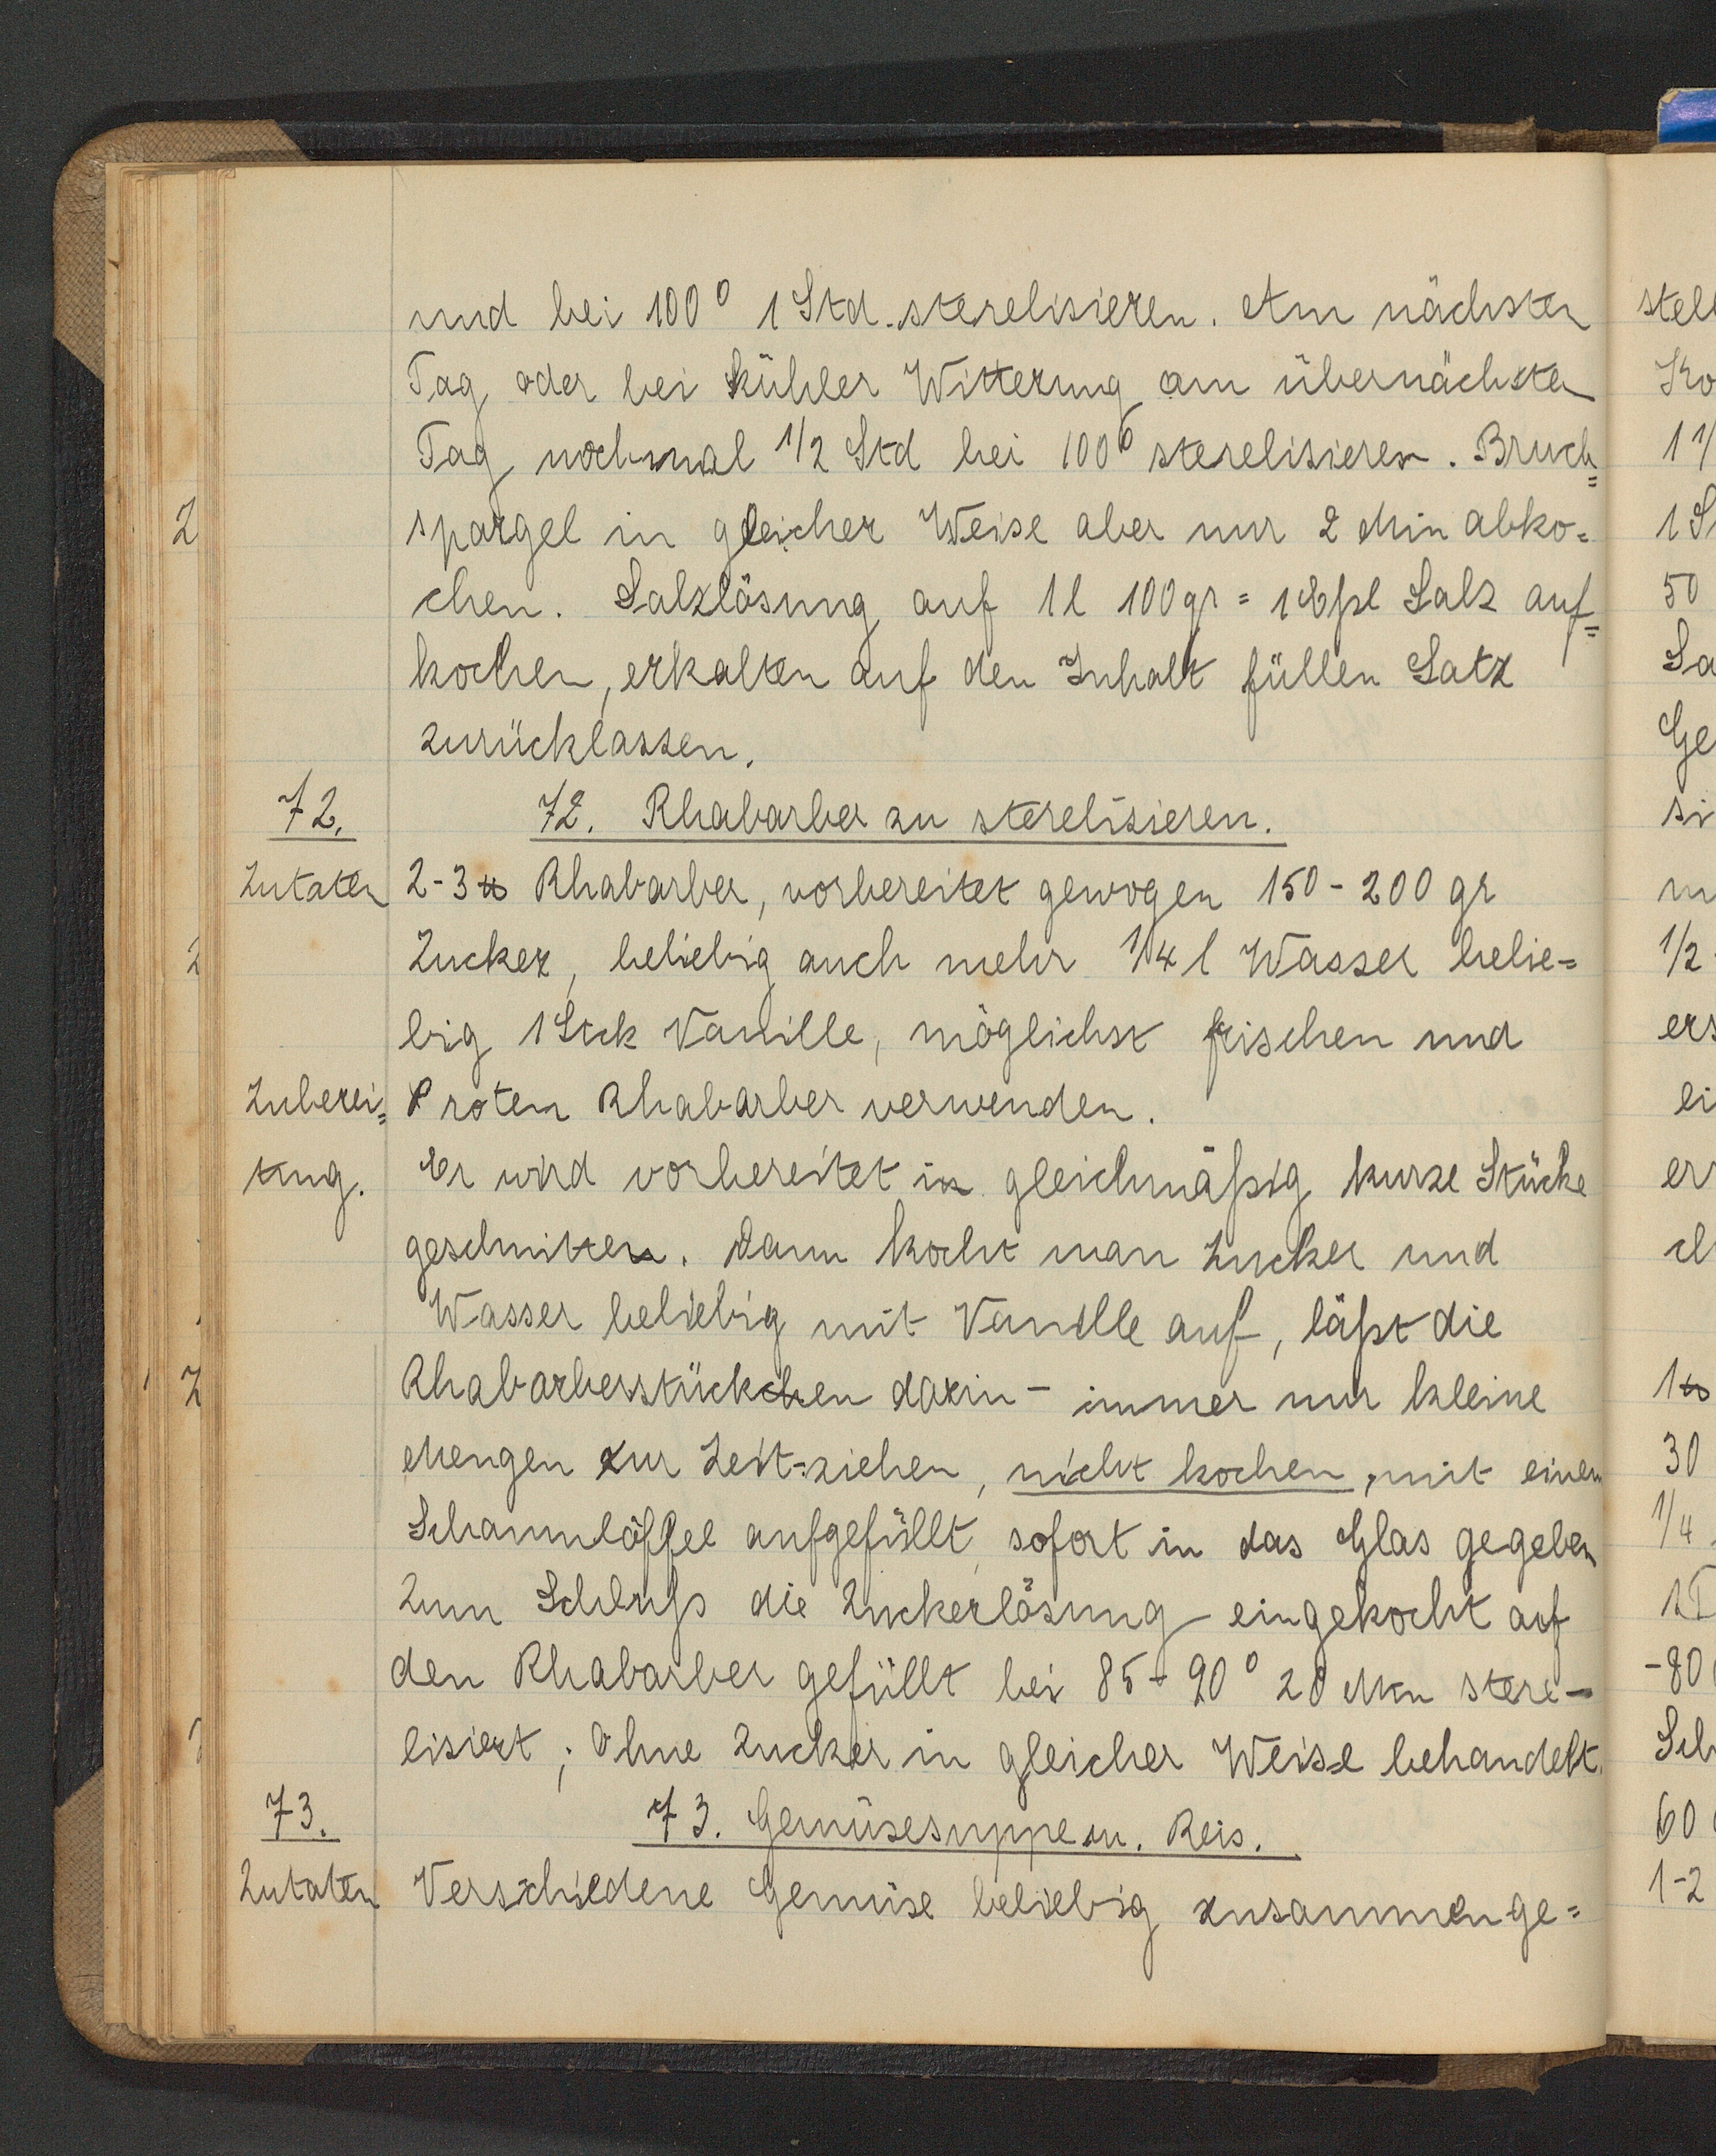 und bei 100° 1 Std. sterelisieren. Am nächsten
Tag oder bei kühler Witterung am übernächsten
Tag nochmal 1/2 Std bei 100° sterelisieren. Bruch=
spargel in gleicher Weise aber nur 2 Min abko=
chen. Salzlösung auf 1 l 100 gr = 1 Eßl Salz auf=
kochen, erkalten auf den Inhalt füllen Satz
zurücklassen.
72. 72. Rhabarber zu sterelisieren.
Zutaten 2-3 ℔ Rhabarber, vorbereitet gewogen 150-200 gr
Zucker, beliebig auch mehr 1/4 l Wasser belie=
big 1 Stck Vanille, möglichst frischen und
Zuberei= roten Rhabarber verwenden.
tung. Er wird vorbereitet in gleichmäßig kurze Stücke
geschnitten. Dann kocht man Zucker und
Wasser beliebig mit Vanille auf, läßt die
Rhabarberstückchen darin - immer nur kleine
Mengen zur Zeit-ziehen, nicht kochen, mit einem
Schaumlöffel aufgefüllt, sofort in das Glas gegeben
Zum Schluß die Zuckerlösung eingekocht auf
den Rhabarber gefüllt bei 85-90° 20 Min stere-
lisiert; Ohne Zucker in gleicher Weise behandelt.
73. 73. Gemüsesuppe m. Reis.
Zutaten Verschiedene Gemüse beliebig zusammenge=
stell
Ko
1 1/
1 S
50
Sa
Ge
si
m
1/2
ers
ei
er
ch
1 ℔
30
1/4
1
-80
Sch
60
1-2
2
2
2